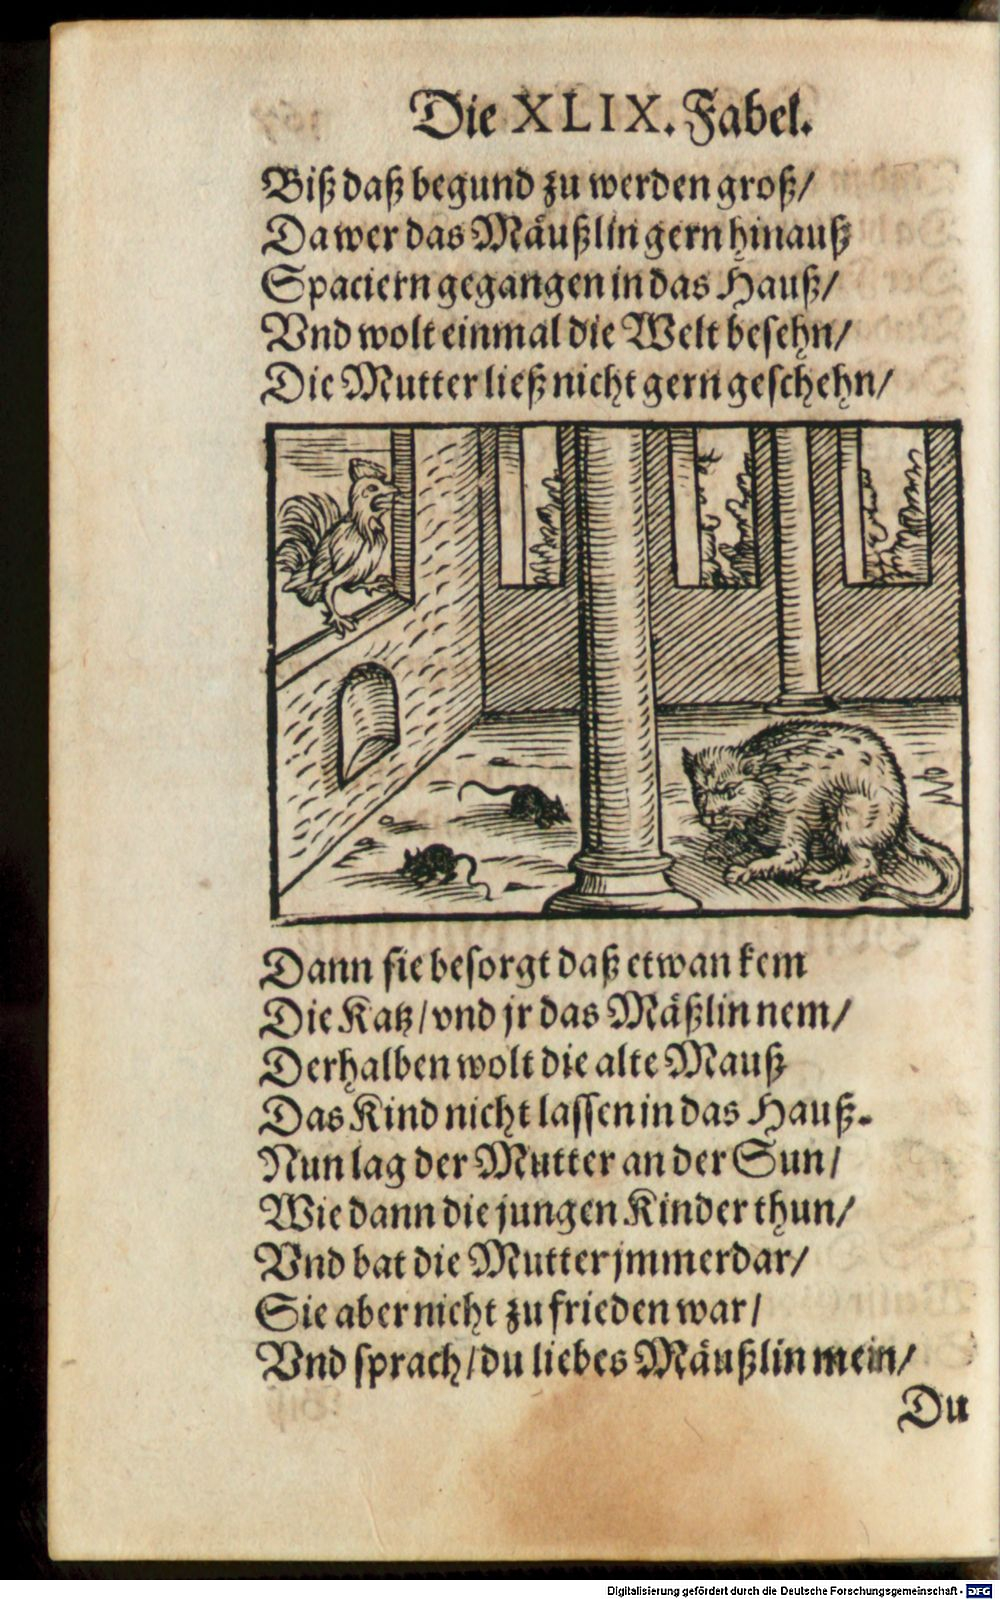 Die XLIX. Fabel.
Biß daß begund zu werden groß/
Da wer das Mäußlin gern hinauß
Spaciern gegangen in das Hauß/
Vnd wolt einmal die Welt besehn/
Die Mutter ließ nicht gern geschehn/
Dann sie besorgt daß etwan kem
Die Katz/ vnd jr das Mäßlin nem/
Derhalben wolt die alte Mauß
Das Kind nicht lassen in das Hauß.
Nun lag der Mutter an der Sun/
Wie dann die jungen Kinder thun/
Vnd bat die Mutter jmmerdar/
Sie aber nicht zu frieden war/
Vnd sprach/ du liebes Mäußlin mein/
Du
Digitalisierung gefördert durch die Deutsche Forschungsgemeinschaft - DFG